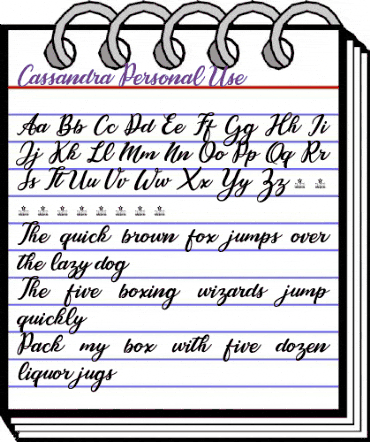 Cassandra Personal Use
Aa Bb Cc Dd Ee Ff Gg Hh Ii
Jj Kk Ll Mm Nn Oo Pp Qq Rr
Ss Tt Uu Vv Ww Xx Yy Zz
The quick brown fox jumps over
the lazy dog
The five boxing wizards jump
quickly
Pack my box with five dozen
liquor jugs